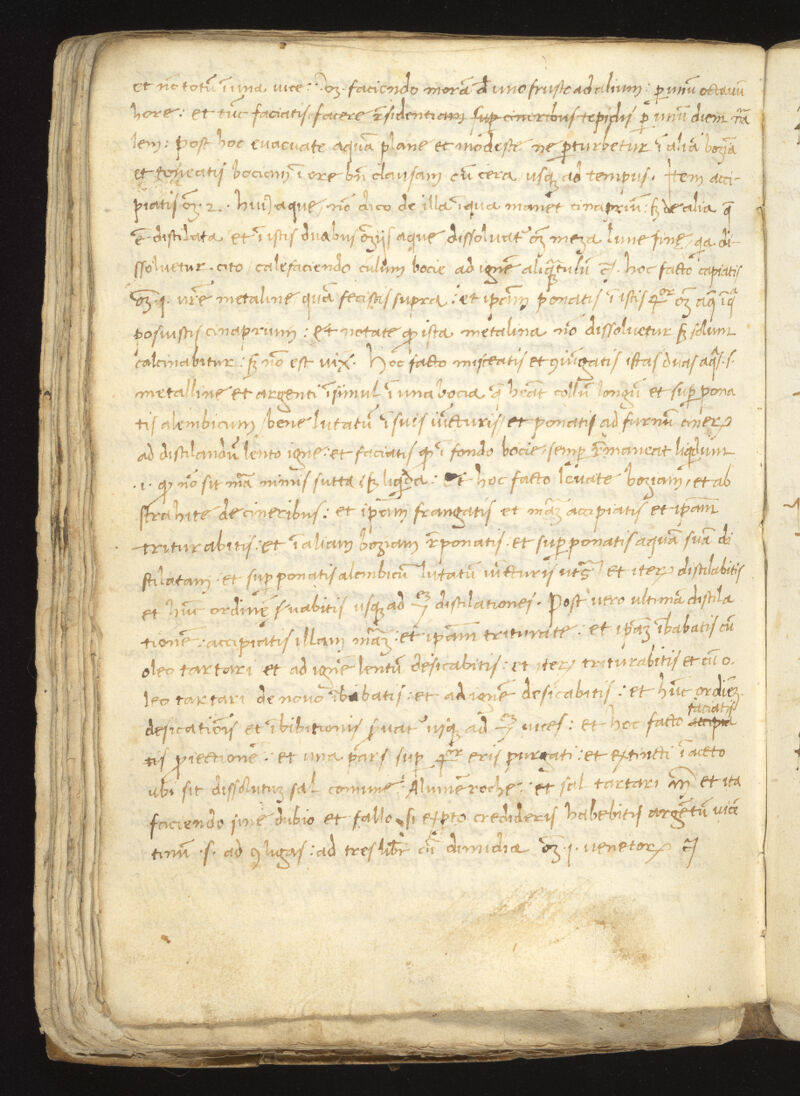 et nō totū ī una vice: ʒ faciendo morā d uno frusto ad alium: p unū octavū
hore: et tūc faciatis facere r̄sidentiam sup cineribus tepidis p unū diem nā
lem: post hoc evacuate aquā plane et modeste ne pturbetur ī aliā boziā
et teneatis bociam ī ore bn̄ clausam cū cera usqȝ ad tempus. Item acci-
piatis oȝ. 2. huiꝰ aque, nō dico de illa ī qua manet cinapriū: sȝ de alia q̄
ē distilata, et ī istis duabus oȝiis aque dissolvat oȝ meza lune fine, qa di-
ssolvetur cito, calefaciendo culum bocie ad ignē aliqtulū. hoc facto capiatis
oȝ. i. vr̄e metaline quā fecistis supra: et ipam ponatis ī istis 4or oȝ aq ī q
posuistis cinaprium: et notate q ista metalina nō dissolvetur sȝ solum
calcinabitur: sȝ nō est vix. Hoc facto misceatis et 9iūgatis istas duas aqs. s.
metalline et argenti īsimul ī una bocia q heat collū longū et sup pona
tis alembicum bene lutatū ī suis iūcturis, et ponatis ad furnū cinerꝝ
ad distilandū lento igne: et faciatis q ī fondo bocie semp r̄maneat liqdum
.i. q nō sit mā nimis sutta sȝ liqda: Et hoc facto levate boziam, et ab
strahite de cineribus: et ipam frangatis et māȝ accipiatis et ipam
triturabitis: et ī aliam boziam r̄ponatis. et sup ponatis aquā suā di
stilatam. et sup ponatis alembicū lutatū iūcturis ut s. et iteꝝ distilabitis
et hūc ordinē svabitis usqȝ ad distilationes. Post vero ultimā distila
tionē: accipiatis illam māȝ: et ipam triturate: et ipāȝ ībabatis cū
oleo tartari et ad ignē lentū desicabitis: et iteꝝ triturabitis et cū o-
leo tartari de novo ībibatis: et ad ignē desicabitis: et hūc ordiēȝ
desicationis et ībibitionis svat usqȝ ad vices: et hoc facto faciatis
tis piectionē. et una pars sup 4or eris purgati: et extincti ī aceto
ubi sit dissolutuȝ sal comune. Alumē roche. et sal tartari añ et ita
faciendo sine dubio et fallo, si expto credideris habebitis argētū vice
tinū .s. ad 9 ligas: ad tres libr cū dimidia oȝ. i. venetoꝝ